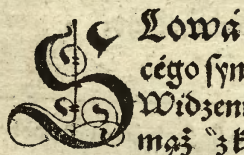 SLowá
cégo syn
Widzeni
maż z k